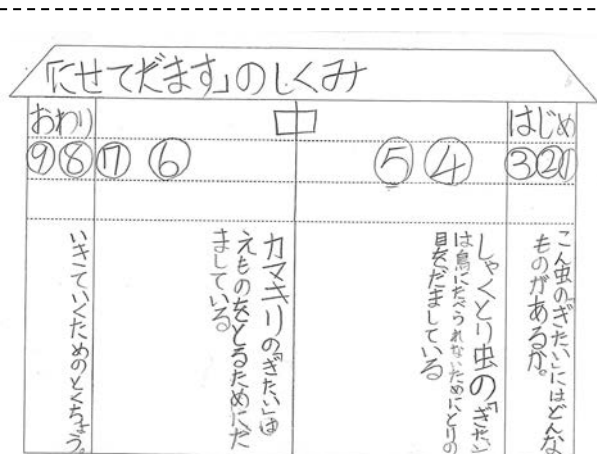 「にせてだます」のしくみ
はじめ
中
おわり
①②③
④⑤
⑥⑦
⑧⑨
こん虫の「ぎたい」にはどんな
ものがあるか。
しゃくとり虫の「ぎたい」
は鳥にたべられないためにとりの
目をだましている
カマキリの「ぎたい」は
えものをとるためにだ
ましている
いきていくためのとくちょう。